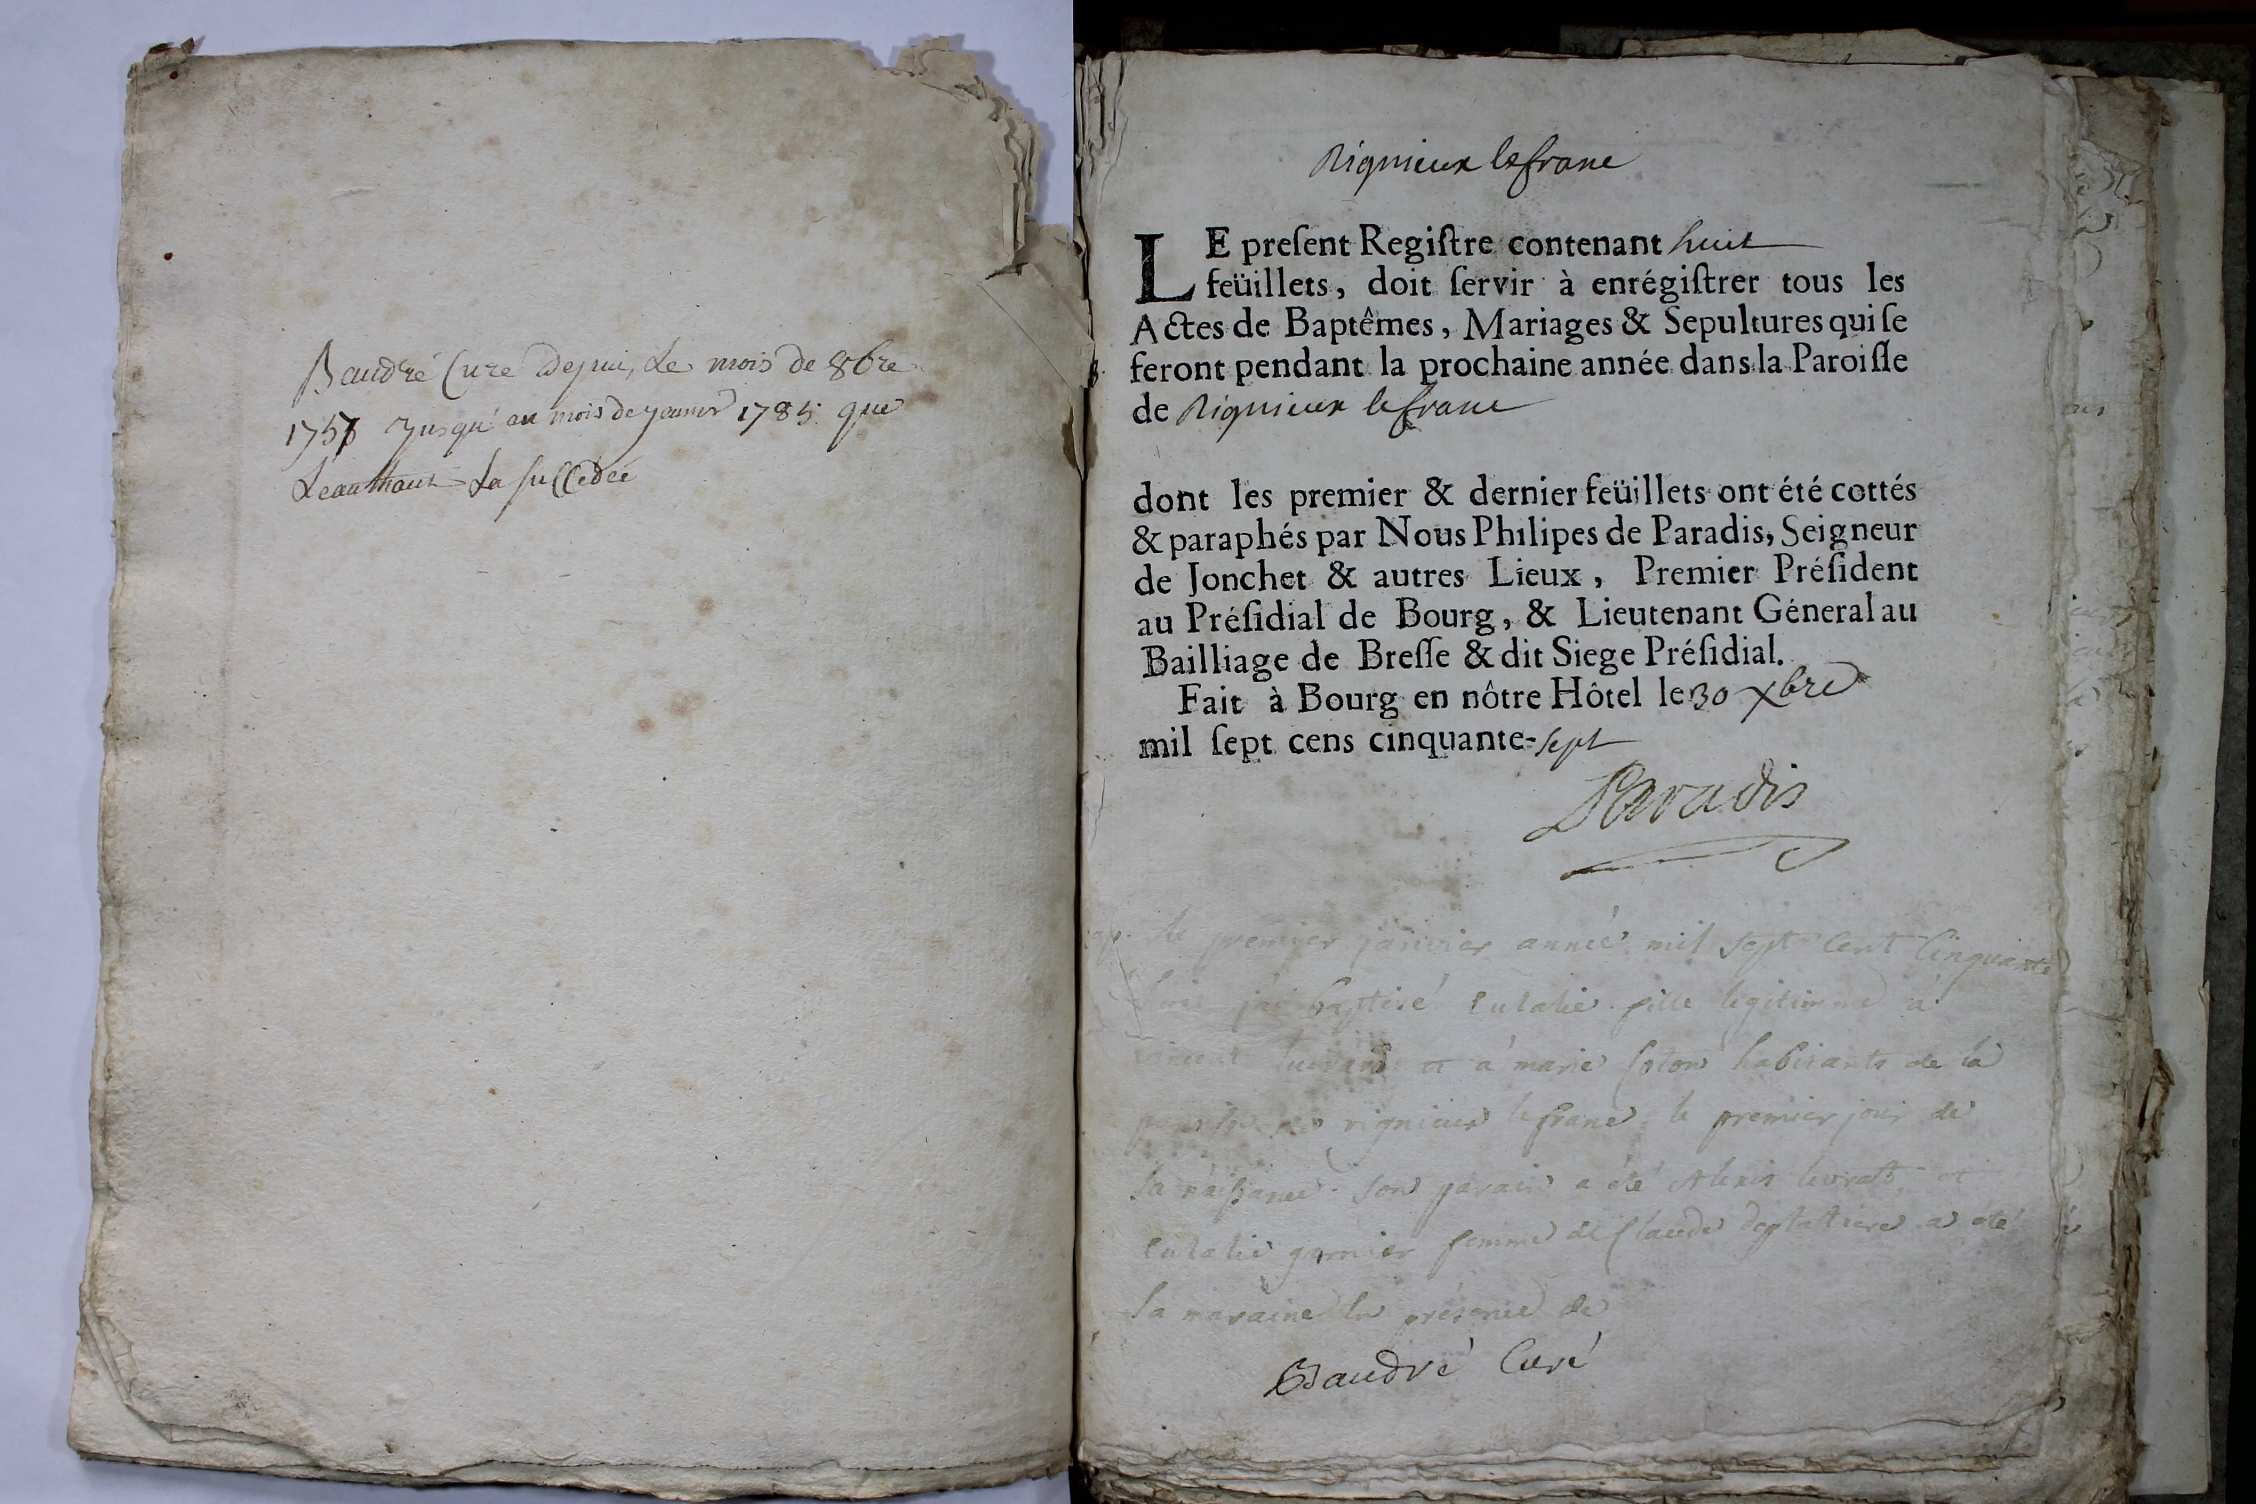 Baudré Curé Depuis Le mois de 8bre
1757 Jusqu'au mois de janvier 1785 que
La succedée
Rignieux lefranc
LE preſent Regiſtre contenant huit
feüillets, doit ſervir à enrégiſtrer tous les
Actes de Baptêmes, Mariages & Sepultures qui ſe
feront pendant la prochaine année dans la Paroiſſe
de Rignieux lefranc
dont les premier & dernier feüillets ont été cottés
& paraphés par Nous Philipes de Paradis, Seigneur
de Jonchet & autres Lieux, Premier Préſident
au Préſidial de Bourg, & Lieutenant Géneral au
Bailliage de Breſſe & dit Siege Préſidial.
Fait à Bourg en nôtre Hôtel le 30 xbre
mil ſept cens cinquante-sept
Paradis
Le premier janvier année mil sept cent cinquante
j'ai baptisé Eulalie fille legitimme à
et à marie habitants de la
rignieux lefranc le premier jour de
sa naissance. son parain a été Alexis livrat et
Eulalie garnier femme de Claude desplatiere a été
la maraine En présence de
Baudré Curé